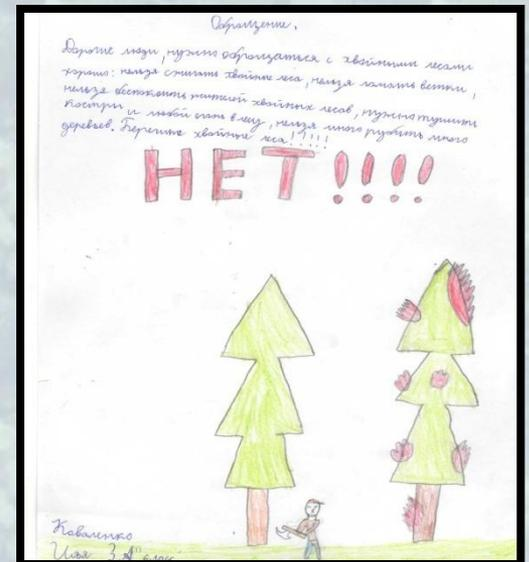 Обращение.
Дорогие люди, нужно обращаться с хвойными лесами
хорошо: нельзя сжигать хвойные леса, нельзя ломать ветки,
нельзя беспокоить жителей хвойных лесов, нужно тушить
костры и любой огонь в лесу, нельзя много рубить много
деревьев. Берегите хвойные леса!!!!!
НЕТ!!!!
Коваленко
Илья 3 "А" класс